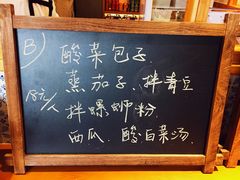 B)
酸菜包子
蒸茄子、拌青豆
18元/人
拌螺蛳粉
西瓜、酸白菜汤